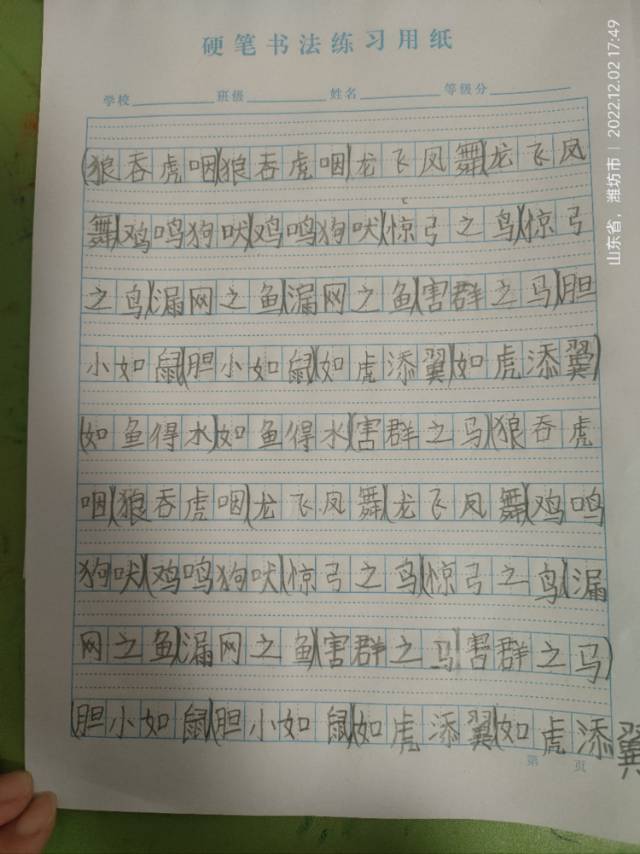 硬笔书法练习用纸
学校 班级 姓名 等级分
(狼吞虎咽)(狼吞虎咽)(龙飞凤舞)(龙飞凤
舞)(鸡鸣狗吠)(鸡鸣狗吠)(惊弓之鸟)(惊弓
之鸟)(漏网之鱼)(漏网之鱼)(害群之马)(胆
小如鼠)(胆小如鼠)(如虎添翼)(如虎添翼)
(如鱼得水)(如鱼得水)(害群之马)(狼吞虎
咽)(狼吞虎咽)(龙飞凤舞)(龙飞凤舞)(鸡鸣
狗吠)(鸡鸣狗吠)(惊弓之鸟)(惊弓之鸟)(漏
网之鱼)(漏网之鱼)(害群之马)(害群之马)
(胆小如鼠)(胆小如鼠)(如虎添翼)(如虎添翼
第 页
山东省，潍坊市 | 2022.12.02 17:49